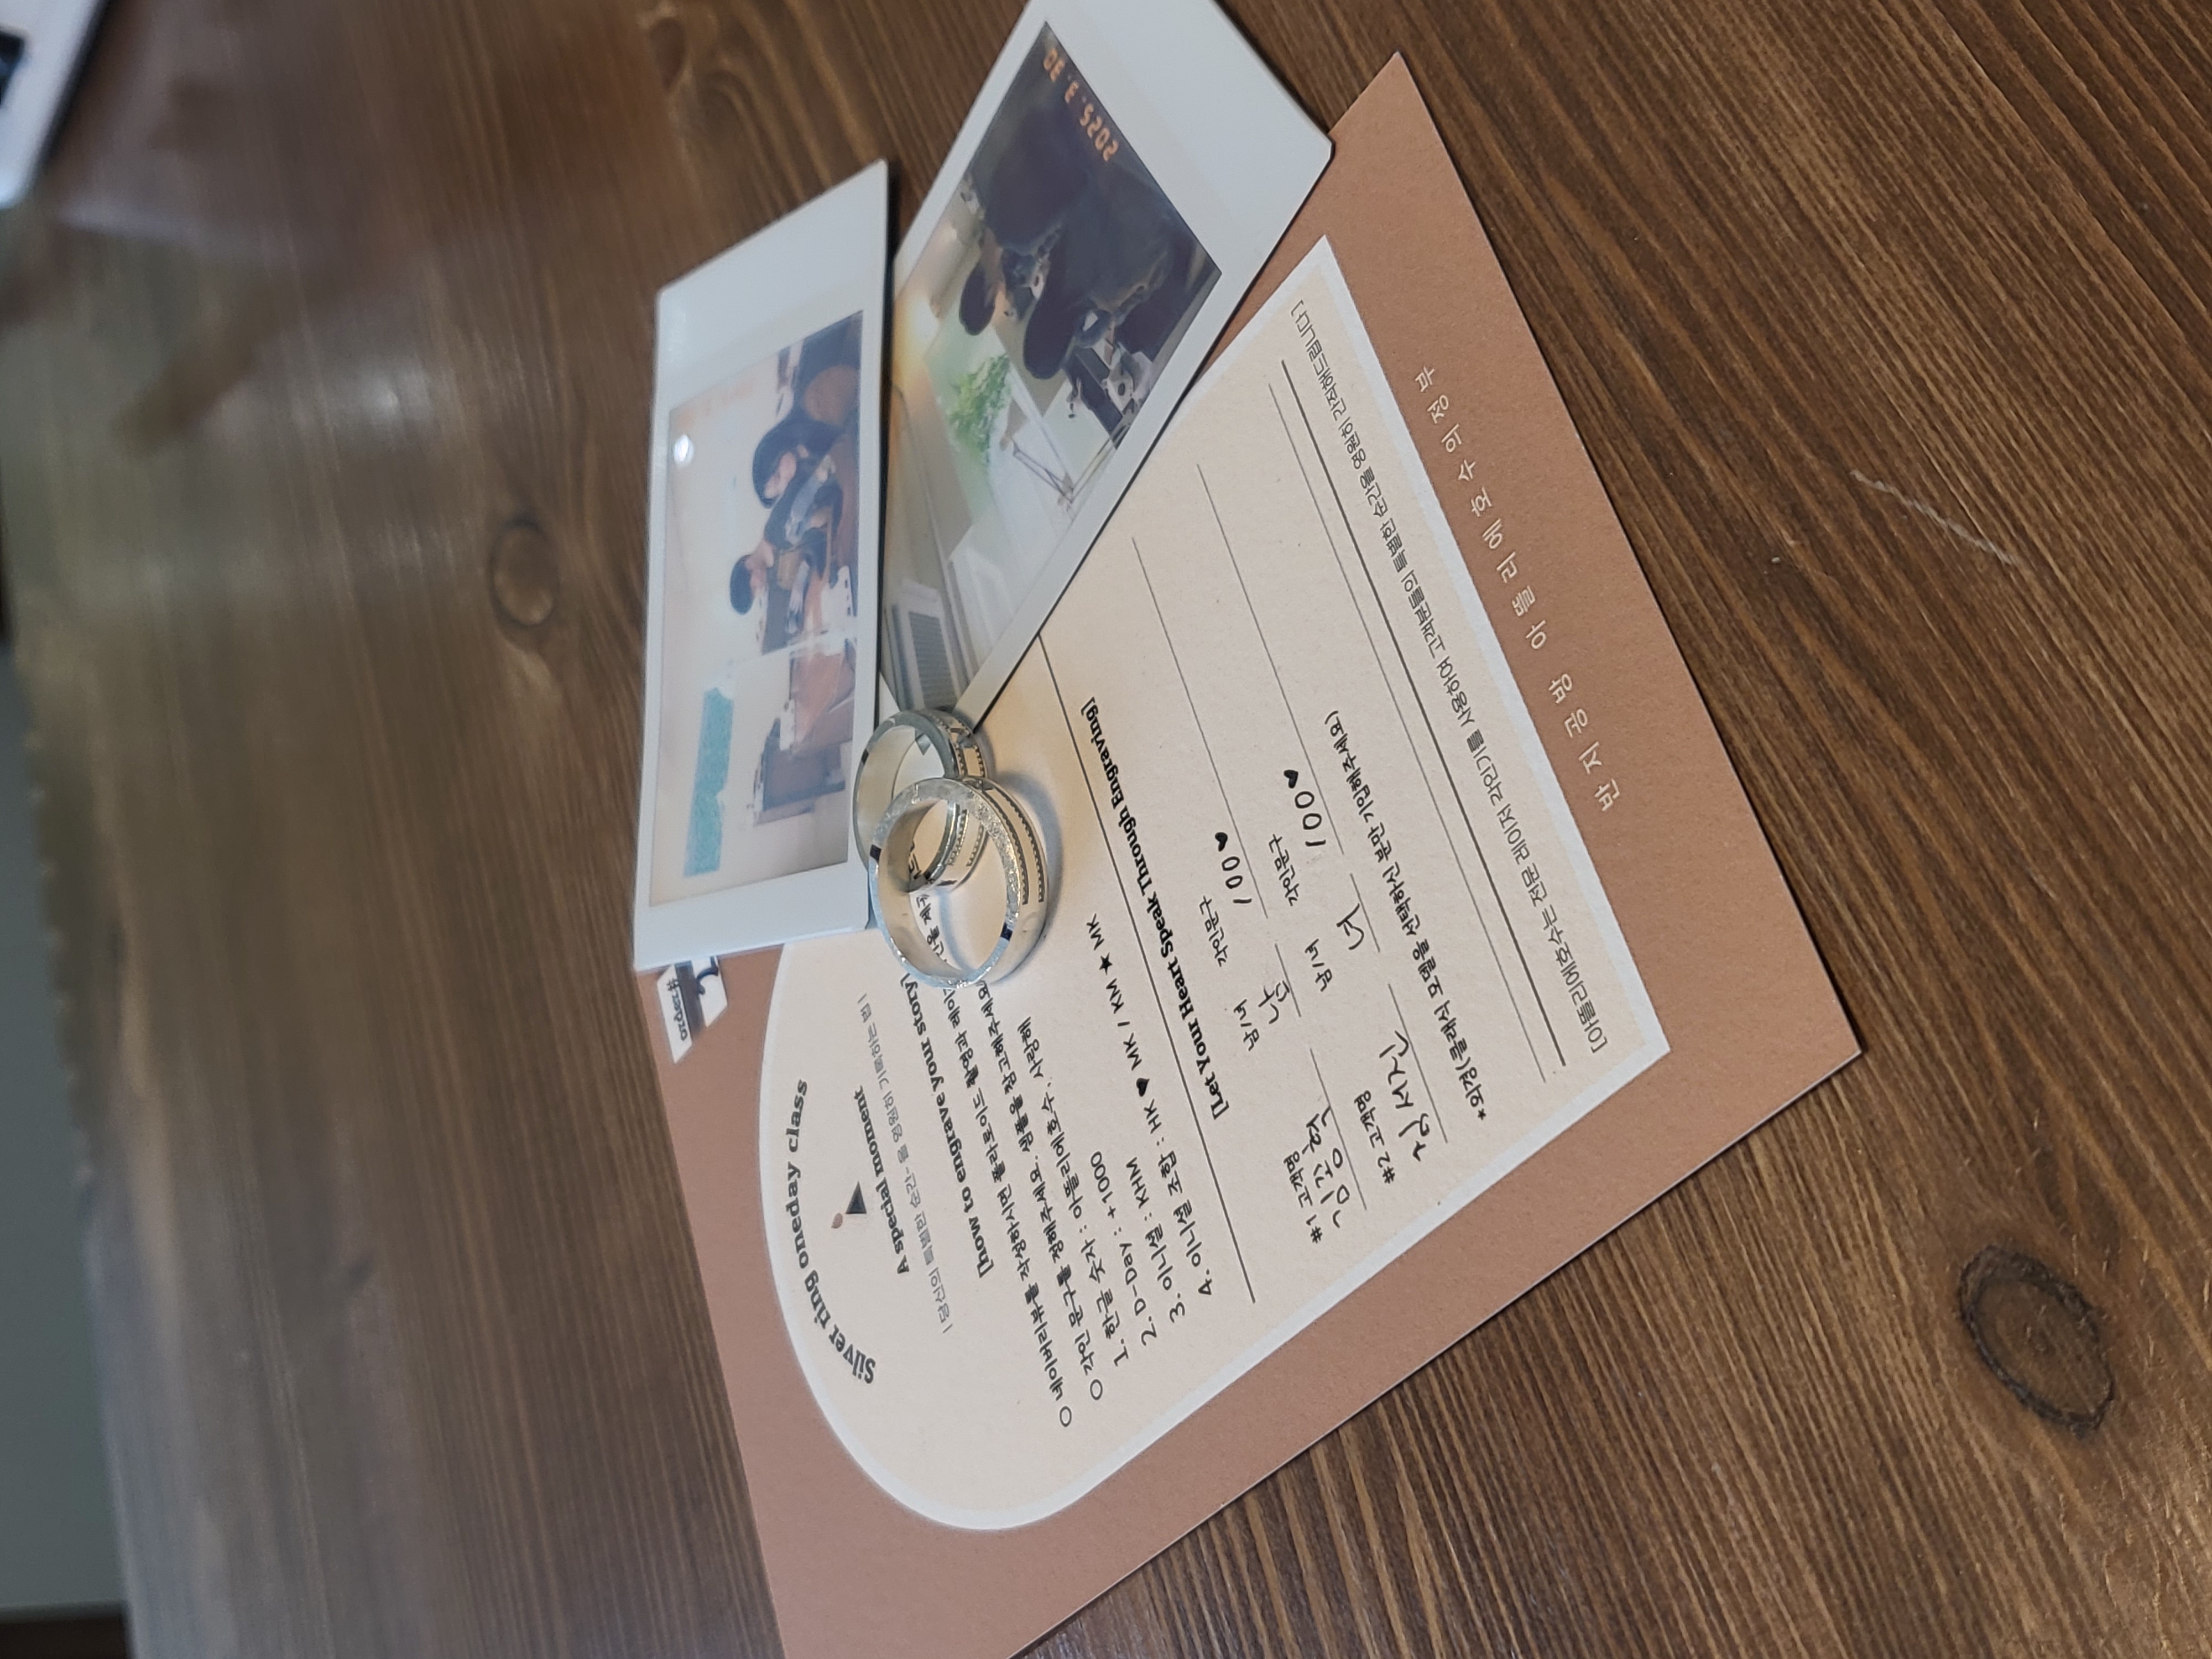 order#
2
Silver ring oneday class
A special moment
| 당신의 특별한 순간-을 영원히 기록하는 법 |
[how to engrave your story]
○ 네이버리뷰를 작성하시면 폴라로이드 촬영과 레이저
○ 각인 문구를 정해주세요. 샘플을 참고해주세요
1. 한글 숫자 : 아뜰리에호수, 사랑해
2. D-Day : +1000
3. 이니셜 : KHM
4. 이니셜 조합 : HK ♥ MK / KM ★ MK
[Let Your Heart Speak Through Engraving]
#1 고객명 남/녀 각인문구
남 100♥
#2 고객명 남/녀 각인문구
김서진 녀 100♥
*외경(클래식 모델을 선택하신 분만 기입해주세요)
[아뜰리에호수는 전문 레이저 각인기를 사용하여 고객분들의 특별한 순간을 영원히 간직해드립니다]
반지공방 아뜰리에호수의정부
2025. 3. 30